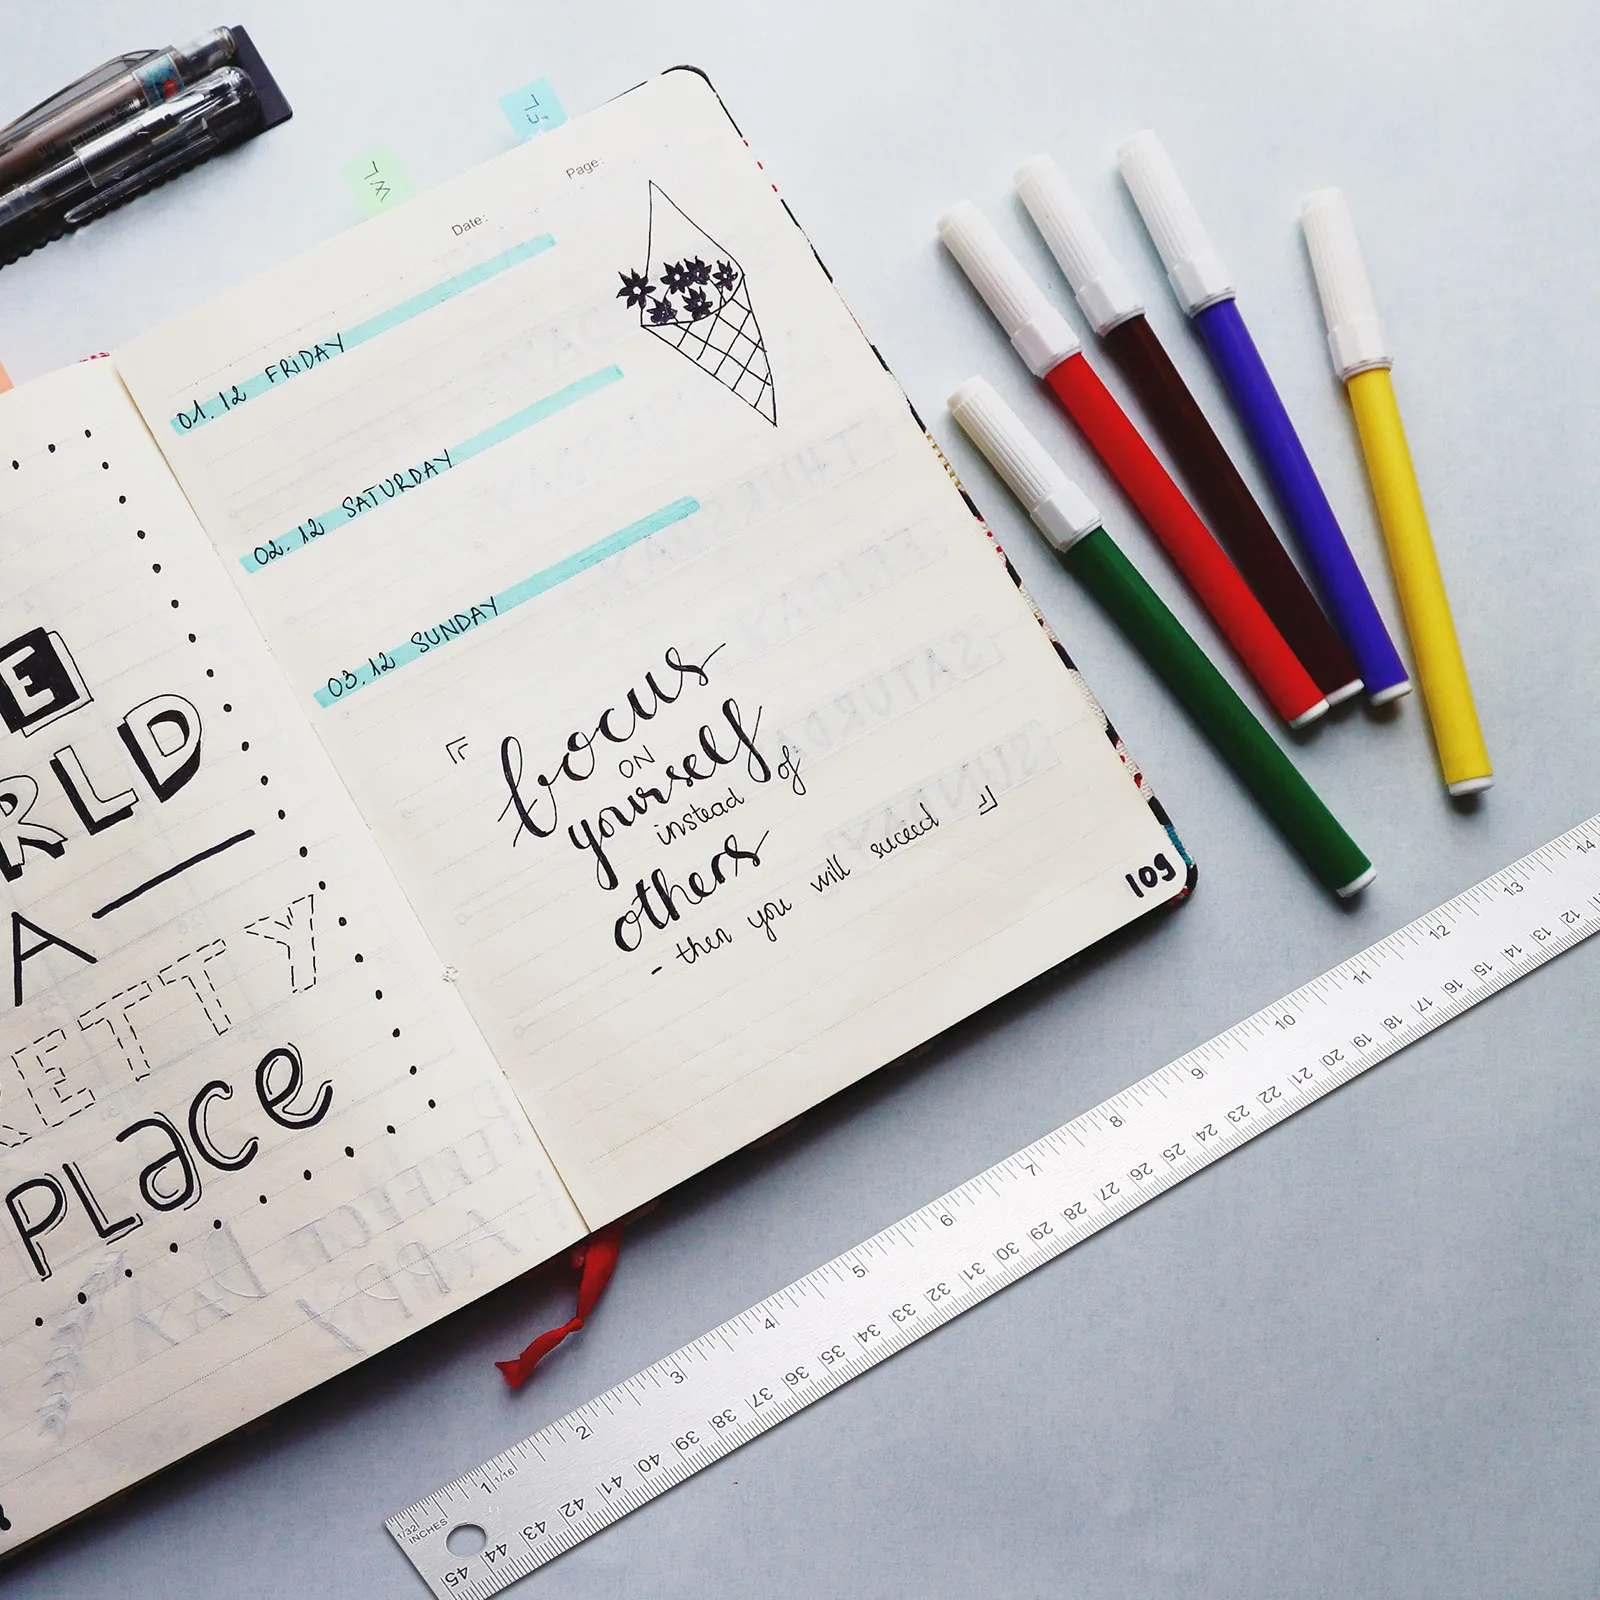 Date:
Page:
01.12 FRIDAY
02.12 SATURDAY
03.12 SUNDAY
focus
ON
yourself
instead of
others
- then you will suceed
109
E
RLD
A
RETTY
PLace
1 2 3 4 5 6 7 8 9 10 11 12 13 14
1/32
1/16
INCHES
45 44 43 42 41 40 39 38 37 36 35 34 33 32 31 30 29 28 27 26 25 24 23 22 21 20 19 18 17 16 15 14 13 12